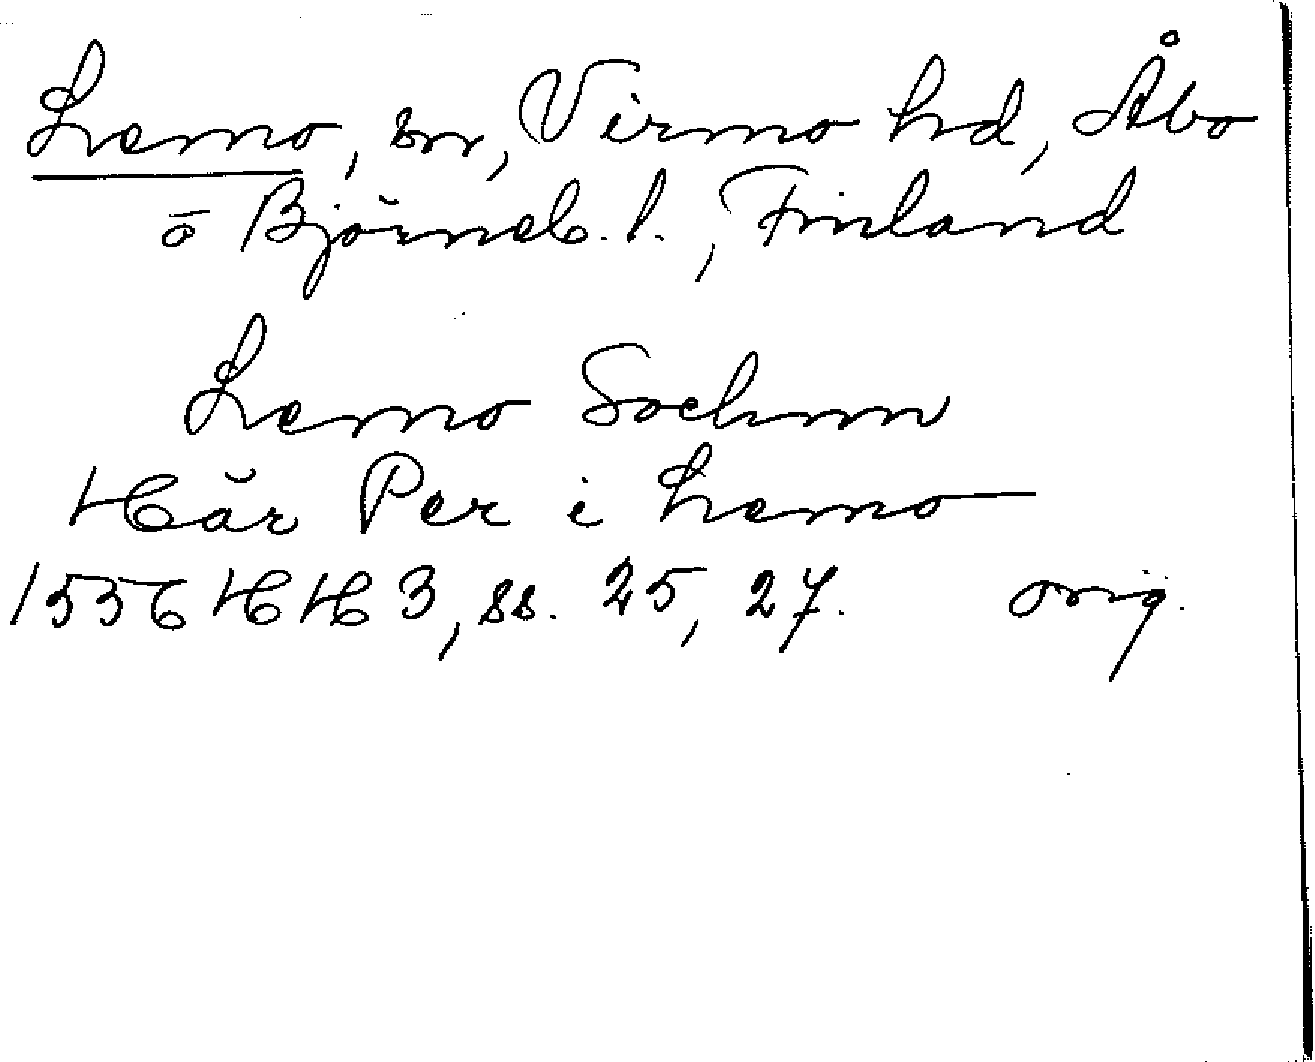 Lemo, sn, Virmo hd, Åbo
o Björneb. l., Finland
Lemo Sochnn
Här Per i Lemo
1556 HH 3, ss. 25, 27. orig.